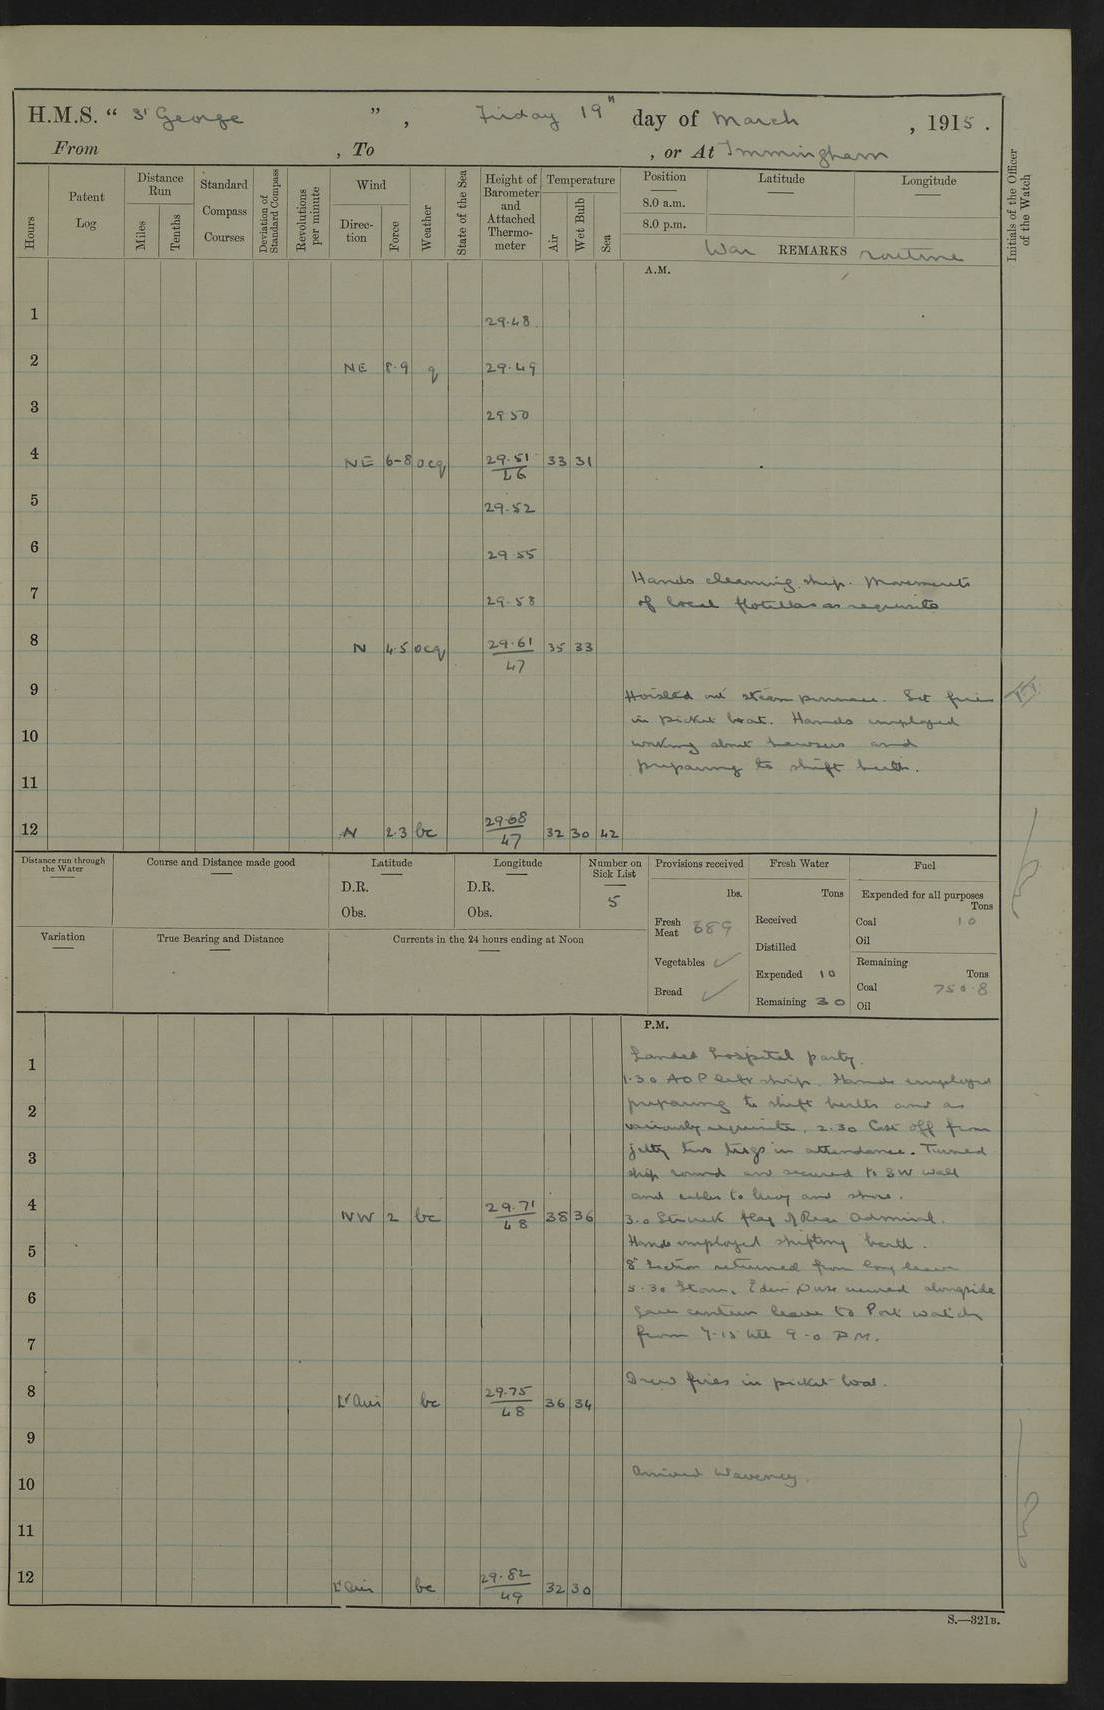 H.M.S. “ St George ” , Friday 19th day of March , 1915 .
From , To , or At Immingham
Hours
Patent Log
Distance Run
Miles
Tenths
Standard Compass Courses
Deviation of Standard Compass
Revolutions per minute
Wind
Direction
Force
Weather
State of the Sea
Height of Barometer and Attached Thermometer
Temperature
Air
Wet Bulb
Sea
Position
Latitude
Longitude
8.0 a.m.
8.0 p.m.
War REMARKS routine
Initials of the Officer of the Watch
A.M.
1 29.48
2 NE 8.9 q 29.49
3 29 50
4 NE 6-8 ocq 29.51 46 33 31
5 29.52
6 29 55
Hands cleaning ship. Movements
7 29.58 of local flotillas as requisite
8 N 4.5 ocq 29.61 47 35 33
9 Hoisted out steam pinnace. Set fires
in picket boat. Hands employed
10 working about hawsers and
preparing to shift berth.
11
12 N 2.3 bc 29.68 47 32 30 42
Distance run through the Water
Course and Distance made good
Latitude
D.R.
Obs.
Longitude
D.R.
Obs.
Number on Sick List
5
Provisions received
lbs.
Fresh Meat 689
Vegetables ✓
Bread ✓
Fresh Water
Tons
Received
Distilled
Expended 10
Remaining 30
Fuel
Expended for all purposes
Tons
Coal 10
Oil
Remaining
Tons
Coal 750.8
Oil
Variation
True Bearing and Distance
Currents in the 24 hours ending at Noon
P.M.
1 Landed hospital party.
1.30 AOP left ship. Hands employed
2 preparing to shift berths and as
variously requisite. 2.30 Cast off from
3 jetty two tugs in attendance. Turned
ship round and secured to SW wall
and cables to buoy and shore.
4 NW 2 bc 29.71 48 38 36 3.0 Struck flag of Rear Admiral.
5 Hands employed shifting berth.
8th Section returned from long leave
6 5.30 Eden secured alongside
Gave canteen leave to Port watch
7 from 7-15 till 9-0 P.M.
8 Lt Airs bc 29.75 48 36 34 Drew fires in picket boat.
9
10 Arrived Waveney.
11
12 Lt Airs bc 29.82 49 32 30
S.—321B.